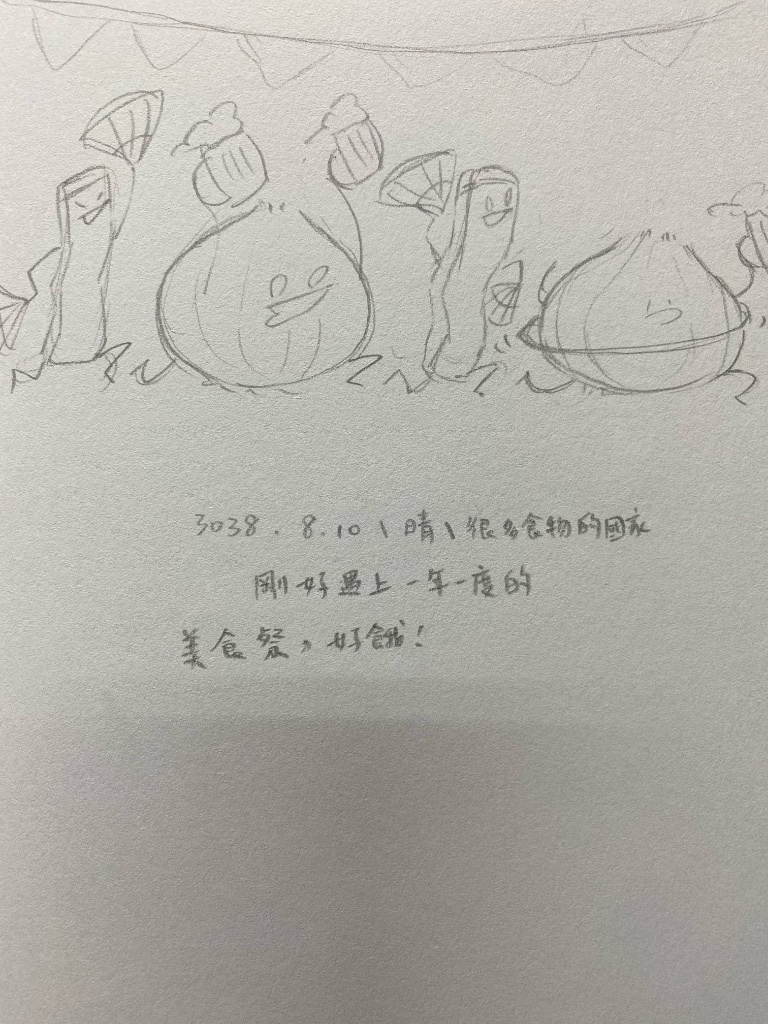 3038.8.10\晴\很多食物的國家
剛好遇上一年一度的
美食祭，好餓！